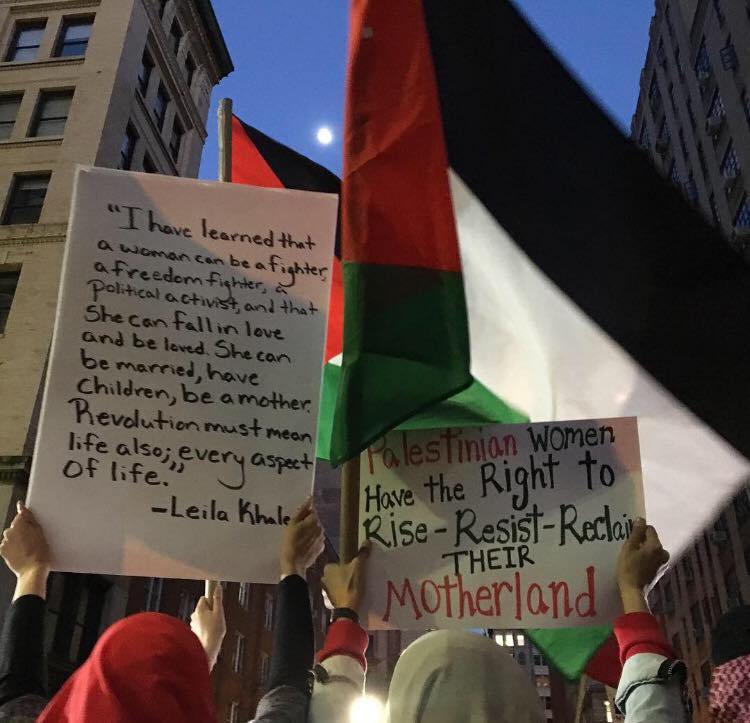 "I have learned that
a woman can be a fighter,
a freedom fighter, a
political activist, and that
She can fall in love
and be loved. She can
be married, have
Children, be a mother.
Revolution must mean
life also; every aspect
Of life."
-Leila Khale
Palestinian Women
Have the Right to
Rise-Resist-Reclaim
THEIR
Motherland